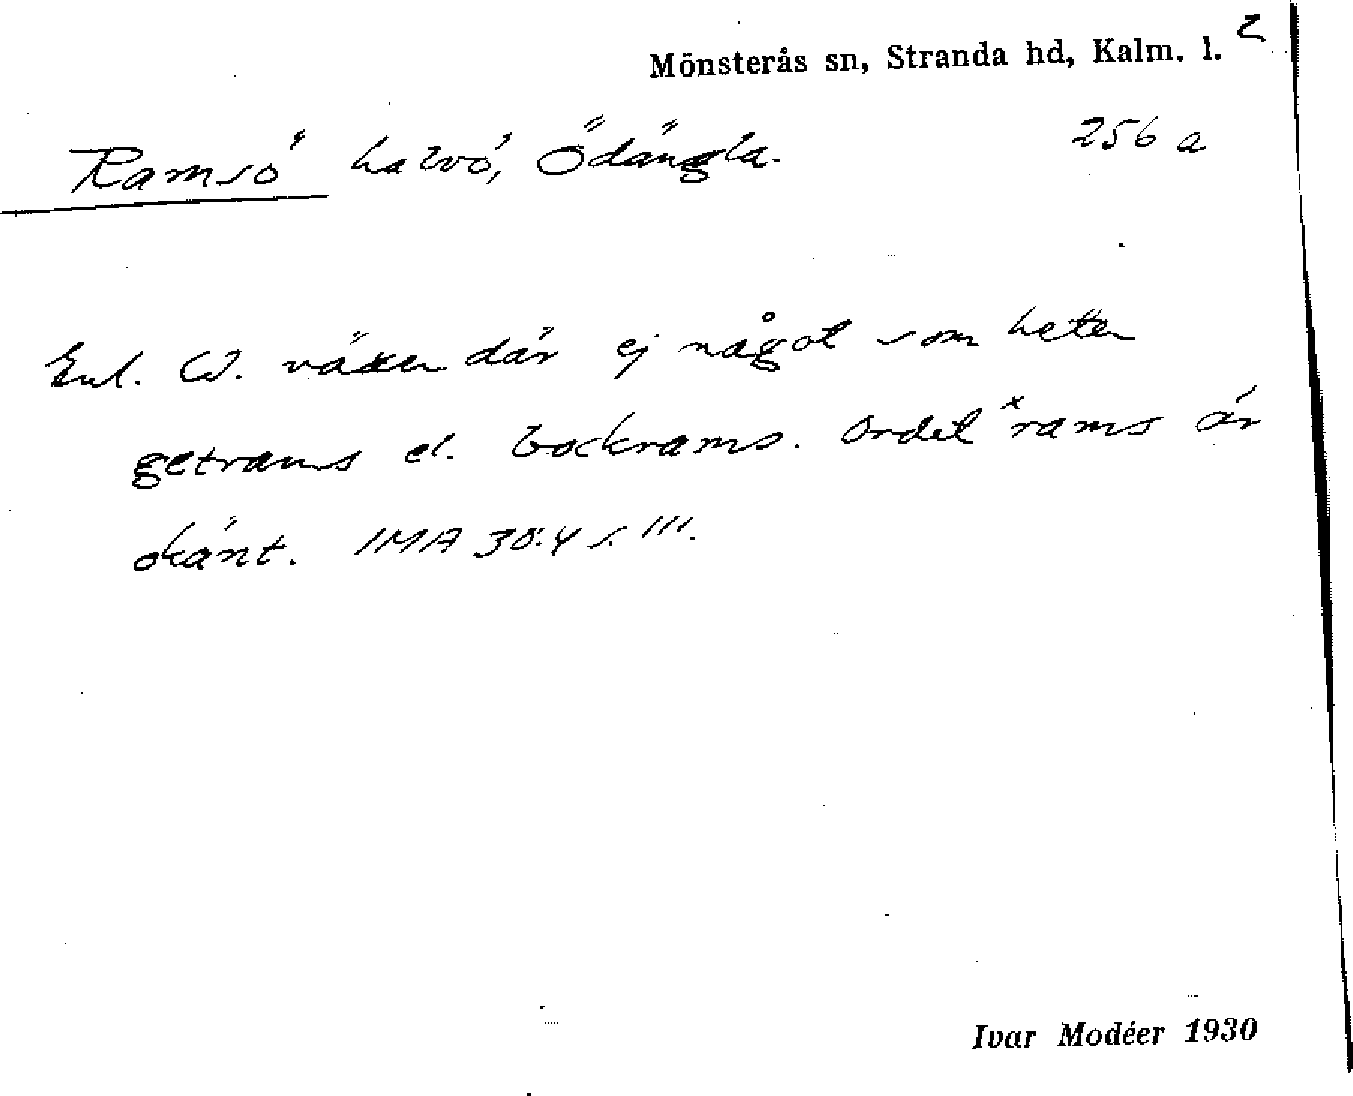 Mönsterås sn, Stranda hd, Kalm. l. 2
Ramsö halvö, Ödängla. 256 a
Enl. W. växer där ej något som heter
getrams el. bockrams. Ordet *rams är
okänt. IMA 30:4 s. 111.
Ivar Modéer 1930